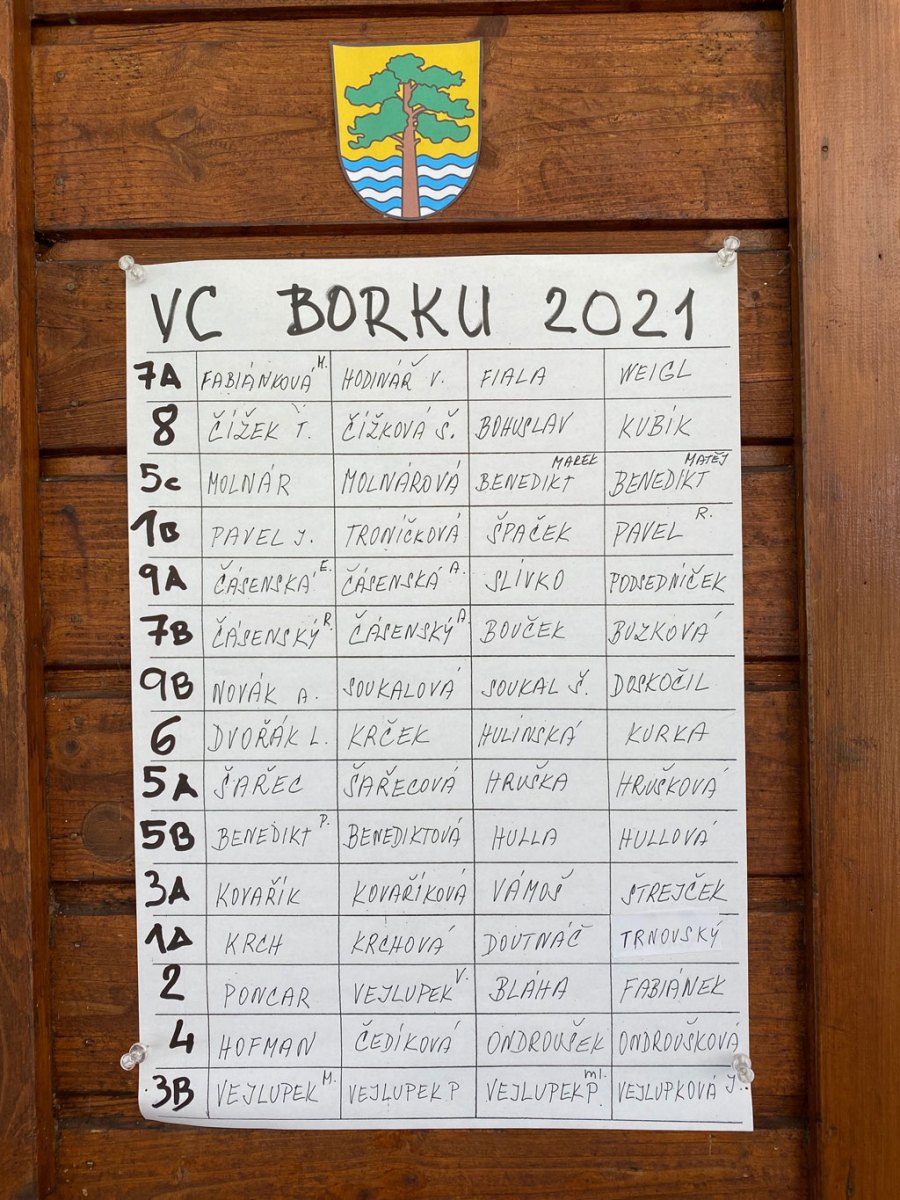 VC BORKU 2021
7A FABIÁNKOVÁ M. HODINÁŘ V. FIALA WEIGL
8 ČÍŽEK T. ČÍŽKOVÁ Š. BOHUSLAV KUBÍK
5c MOLNÁR MOLNÁROVÁ BENEDIKT MAREK BENEDIKT MATĚJ
1B PAVEL J. TRONÍČKOVÁ ŠPAČEK PAVEL R.
9A ČÁSENSKÁ E. ČÁSENSKÁ A. SLÍVKO PODSEDNÍČEK
7B ČÁSENSKÝ R. ČÁSENSKÝ A BOUČEK BUZKOVÁ
9B NOVÁK A. SOUKALOVÁ SOUKAL Š. DOSKOČIL
6 DVOŘÁK L. KRČEK HULINSKÁ KURKA
5A ŠAŘEC ŠAŘECOVÁ HRUŠKA HRUŠKOVÁ
5B BENEDIKT P. BENEDIKTOVÁ HULLA HULLOVÁ
3A KOVAŘÍK KOVAŘÍKOVÁ VÁMOŠ STREJČEK
1A KRCH KRCHOVÁ DOUTNÁČ TRNOVSKÝ
2 PONCAR VEJLUPEK V. BLÁHA FABIÁNEK
4 HOFMAN ČEDÍKOVÁ ONDROUŠEK ONDROUŠKOVÁ
3B VEJLUPEK M. VEJLUPEK P VEJLUPEK P. ml. VEJLUPKOVÁ J.